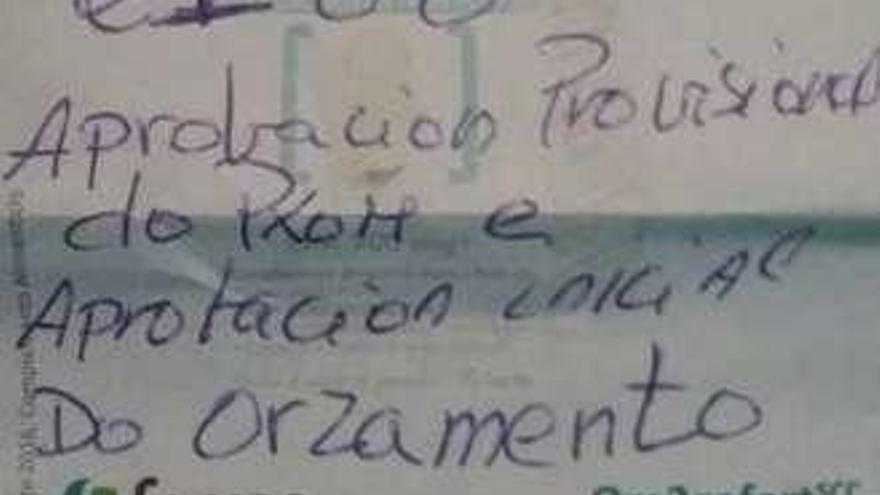 Aprobacion Provisional
do PXOM e
Aprobacion inicial
Do Orzamento